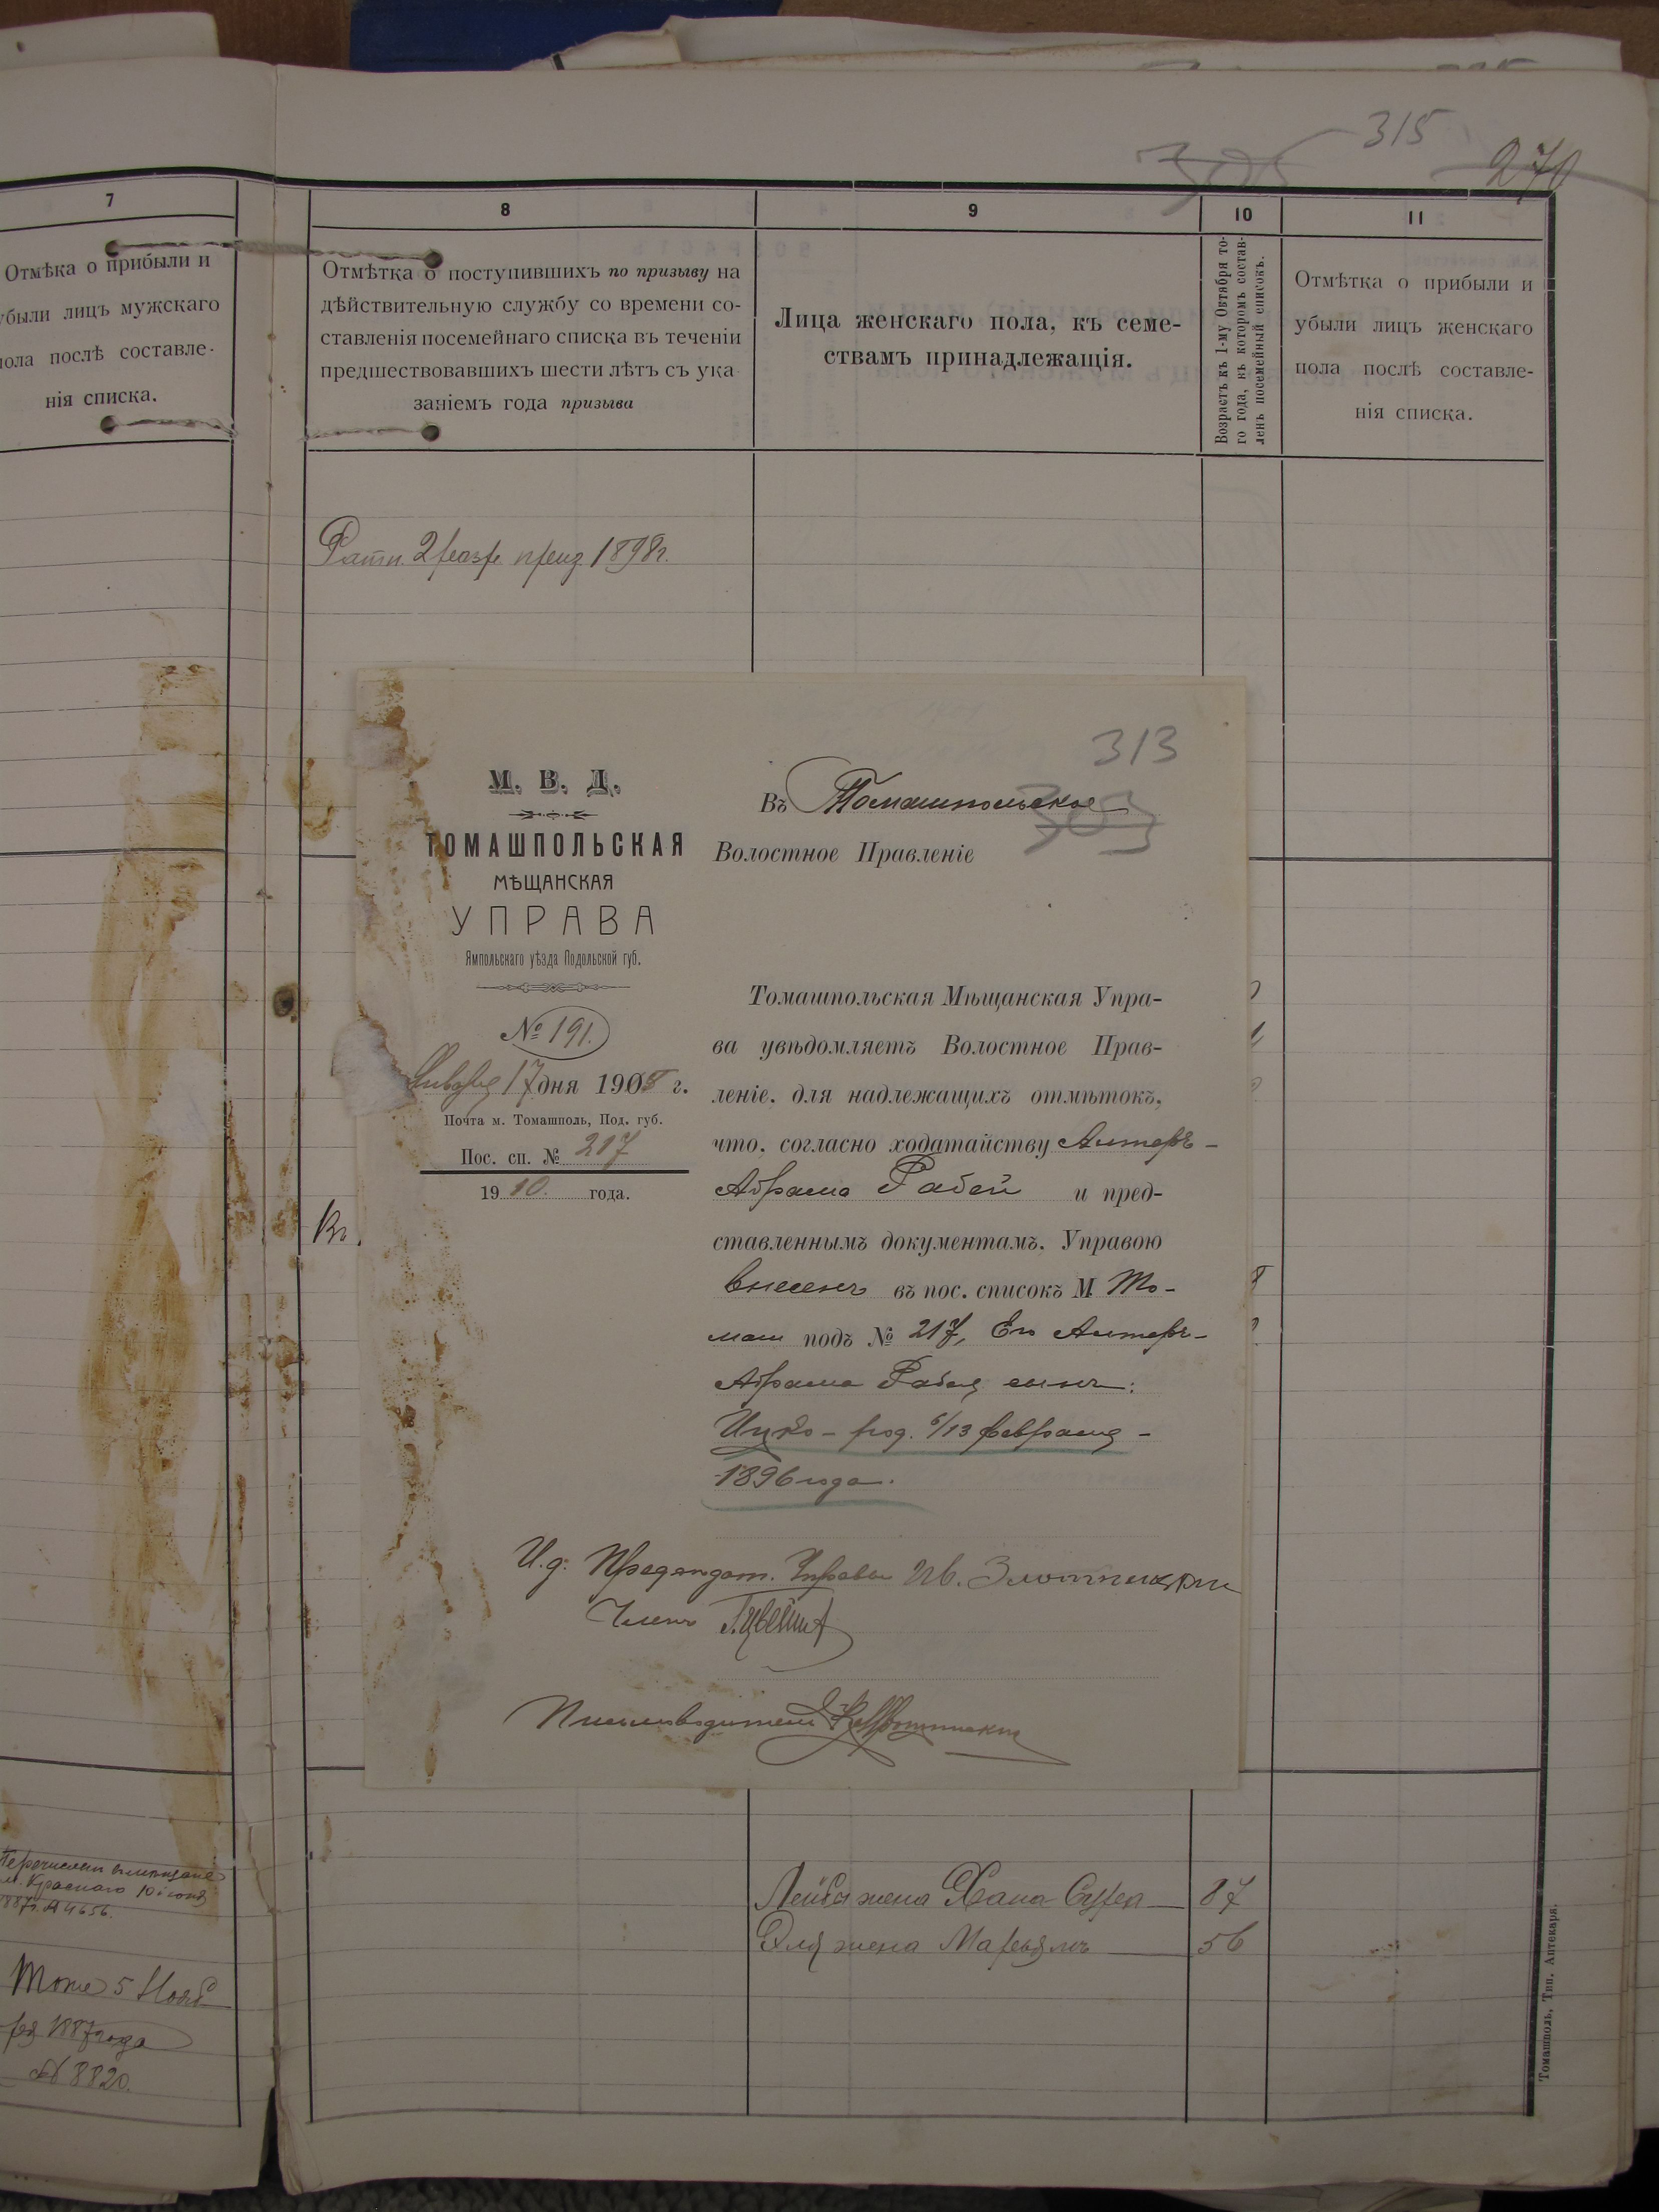 315
270
7
Отмѣка о прибыли и
убыли лицъ мужскаго
пола послѣ составле-
нія списка.
8
Отмѣтка о поступившихъ по призыву на
дѣйствительную службу со времени со-
ставленія посемейнаго списка въ теченіи
предшествовавшихъ шести лѣтъ съ ука
заніемъ года призыва
9
Лица женскаго пола, къ семе-
ствамъ принадлежащія.
10
Возрастъ къ 1-му Октября то-
го года, къ которомъ состав-
ленъ посемейный списокъ.
11
Отмѣтка о прибыли и
убыли лицъ женскаго
пола послѣ составле-
нія списка.
Ратн. 2 разр. приз. 1898 г.
313
М. В. Д.
ТОМАШПОЛЬСКАЯ
МѢЩАНСКАЯ
УПРАВА
Ямпольскаго уѣзда Подольской губ.
№ 191.
Января 17 дня 190 г.
Почта м. Томашполь, Под. губ.
Пос. сп. № 217
1910. года.
Въ Томашпольское
Волостное Правленіе
Томашпольская Мѣщанская Упра-
ва увѣдомляетъ Волостное Прав-
леніе, для надлежащихъ отмѣтокъ,
что, согласно ходатайству Антеръ-
Абрама Рабей и пред-
ставленнымъ документамъ, Управою
внесенъ въ пос. списокъ М То-
маш подъ № 217, Его Антеръ-
Абрама Рабея сынъ:
Ицко - род. 6/13 февраля -
1896 года.
И. д. Председат. Управы Ив.
Членъ
Письмоводитель
м. Краснаго 10 іюня
1887 г. № 4656.
Тоже 5 Нояб
ря 1887 года
№ 8820.
Лейба жена Хана Сура 87
Эля жена Марьямъ 56
Томашполь, Тип. Аптекаря.